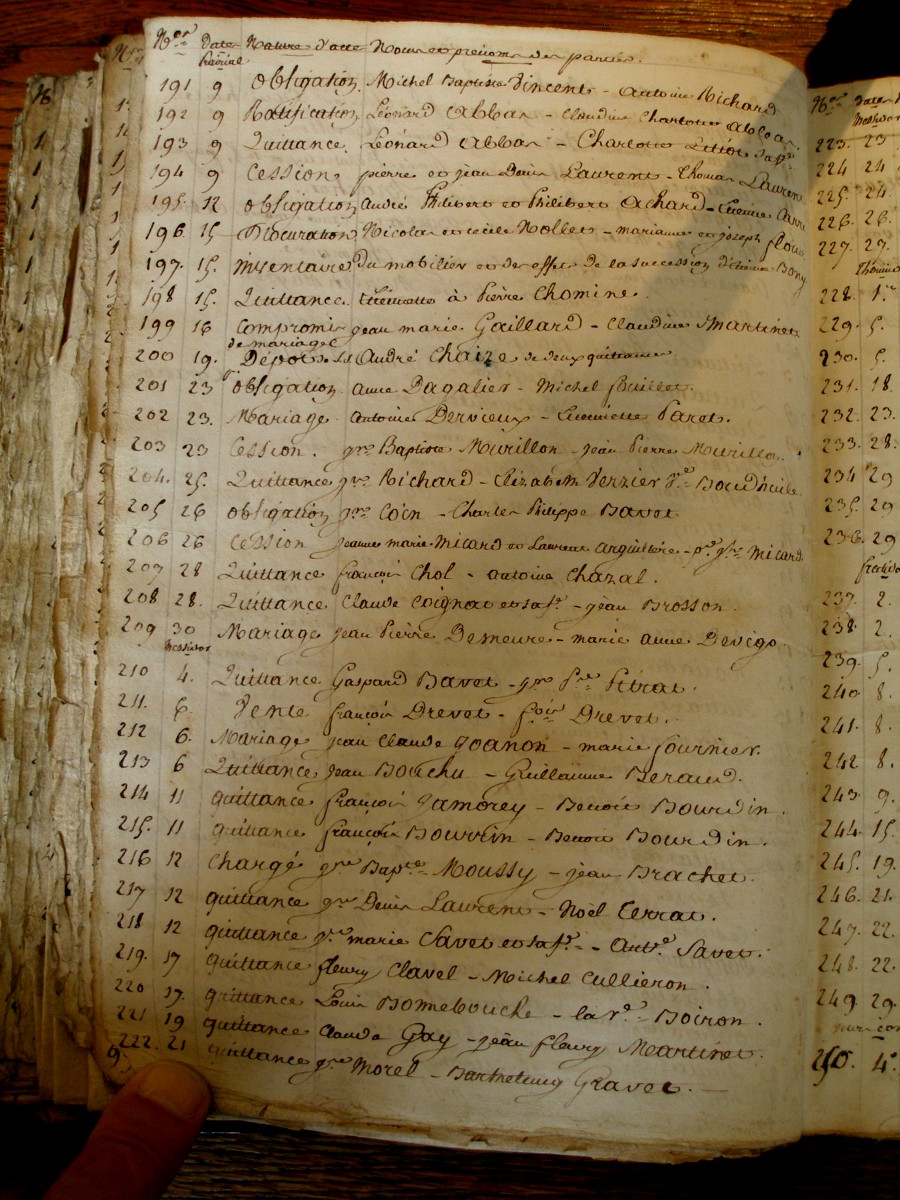 Nos Date Nature d'acte Noms et prénoms des parties.
Prairial
191 9 Obligation. Michel Baptiste Vincent - Antoine Richard
192 9 Ratification Léonard Abbar - Claudine Charlotte Abbar
193 9 Quittance. Léonard Abbar - Charlotte
194 9 Cession pierre et jean Denis Laurent - Thomas Laurent
195. 12 obligation André Philibert et Philibert Achard -
196. 15 Procuration Nicolas et cécile Nollet - marianne et joseph
197. 15. Inventaire du mobilier et des effets de la succession d'étienne Bony
198 15. Quittance. à Pierre Chomine.
199 16 Compromis jean marie Gaillard - Claudine Martinet
de mariage
200 19. Dépot André Chaize de deux quittances
201 23 obligation anne Dagalier - Michel
202 23. Mariage antoine Dervieux - Paret.
203 23 Cession. jn Baptiste Murillon - jean Pierre Murillon.
204. 25. Quittance Richard - Elizabeth Verzier
205 26 obligation - Charles Philippe Bavet
206 26 Cession jeanne marie Micard et Laurent - Micard
207 28 Quittance françois Chol - antoine Chazal.
208 28. Quittance Claude Coignat et sa fe - jean Brosson.
209 30 Mariage jean Pierre Demeure - marie anne Devigo.
Messidor
210 4. Quittance Gaspard Bavet - Pitrat.
211. 6. Vente françois Drevet - fçois Drevet.
212 6. Mariage jean Claude Joanon - marie fournier.
213 6 Quittance jean Bouchu - Guillaume Beraud.
214 11 quittance françois Jamorey - Benoit Bourdin.
215. 11 quittance françois Bourrin - Benoit Bourdin.
216 12 Chargé jn Bapte Moussy - jean Brachet.
217 12 quittance jn Denis Laurent - Noël Cerrat.
218 12 quittance jn marie Savet et sa fe - Ante Savet.
219. 17 quittance fleury Clavel - Michel Cullieron.
220 17. quittance Louis Bonnebouche - la ve Boiron.
221 19 quittance Claude Gay - jean fleury Martinet.
222. 21 quittance Morel - Barthelemy Gravet.
9.
Nos Date
Messidor
223. 23
224 24
225. 24.
226. 26.
227. 27.
228. 1er
229. 5.
230. 5.
231. 18.
232. 23.
233. 28.
234 29
235. 29
236. 29
237. 2.
238. 2.
239. 5.
240. 8.
241. 8.
242 8.
243 9.
244. 15.
245. 19.
246. 21.
247. 22.
248. 22.
249. 29.
250. 4e